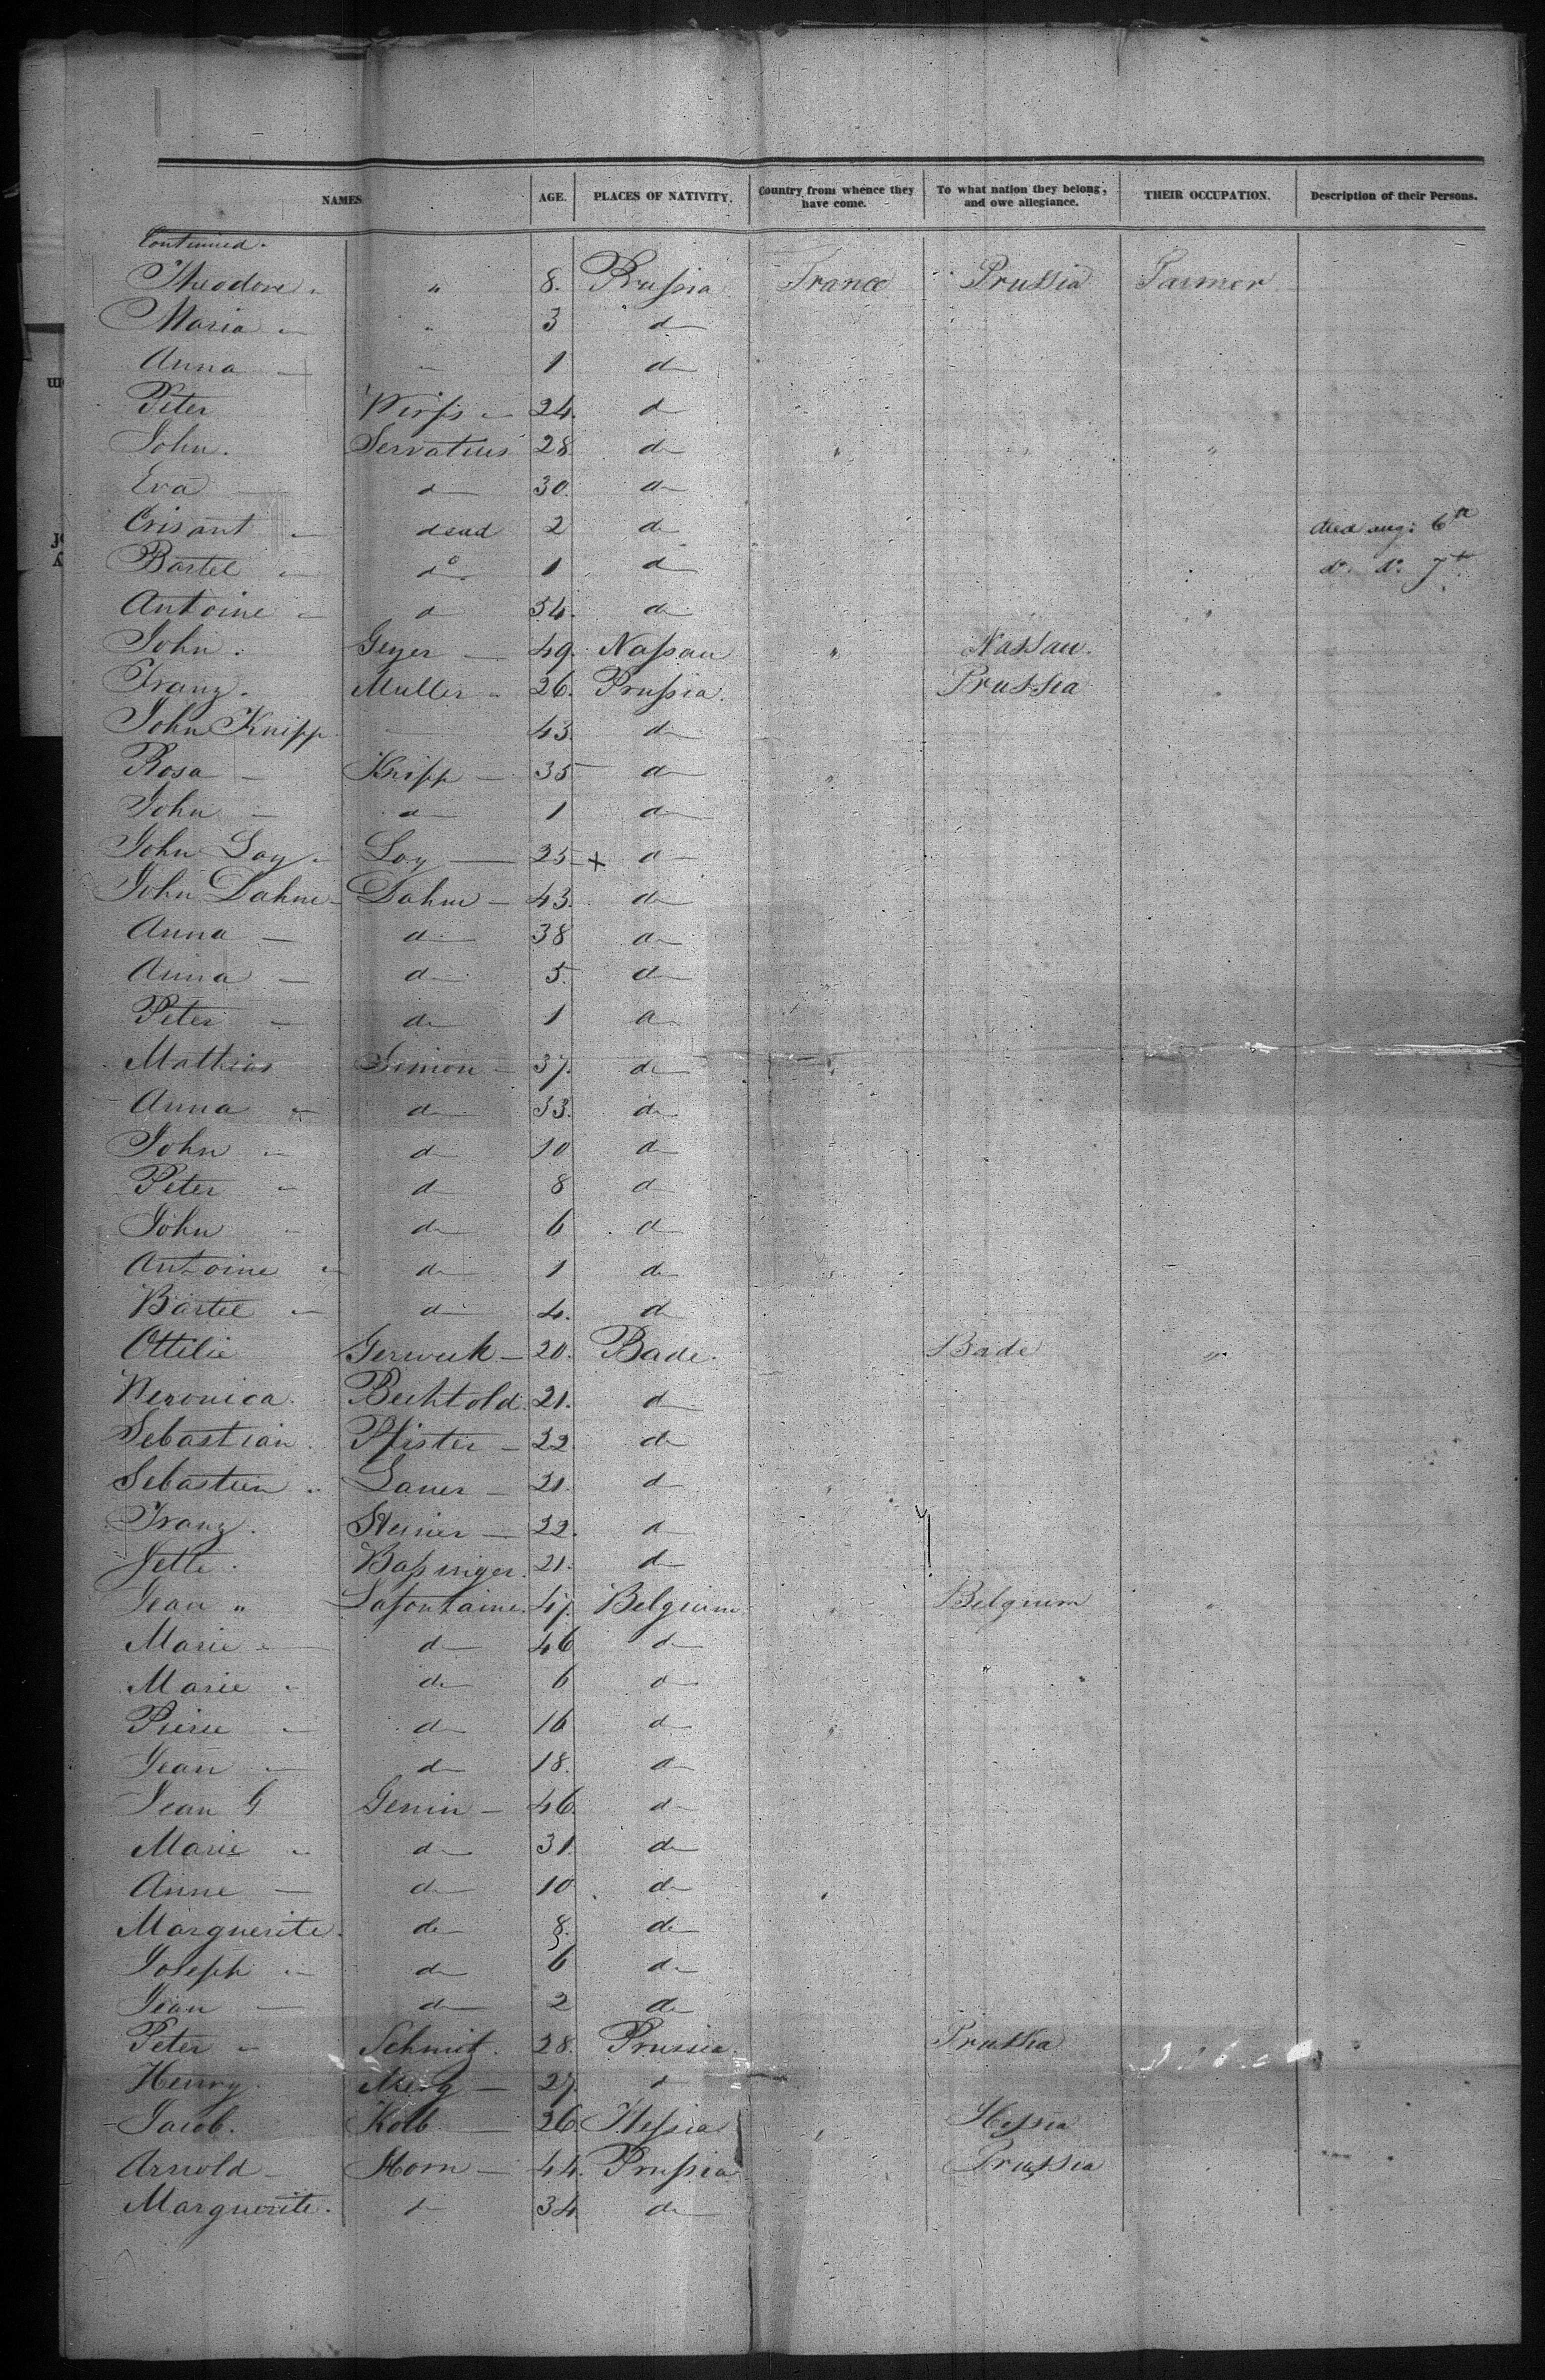 NAMES AGE. PLACES OF NATIVITY. Country from whence they have come. To what nation they belong, and owe allegiance. THEIR OCCUPATION. Description of their Persons.
Continued.
Theodore " " 8. Prussia France Prussia Farmer
Maria " " 3 d
Anna — " 1 d
Peter 24. d
John. Servatius 28 d " " "
Eva — d 30. d
Crisant — dead 2 d died aug: 6th
Bartel " do 1 d do. do. 7th
Antoine " d 54. d
John. Geyer — 49. Nassau " Nassau.
Franz. Muller " 26. Prussia. Prussia
John Knipp — 43. d
Rosa — Knipp — 35 d "
John — d 1 d
John Loy " Loy — 25 + d
John Dahm — Dahm — 43. d
Anna — d 38 d
Anna — d 5. d
Peter — d 1 d
Mathias Simon — 37. d "
Anna " d 33. d
John " d 10 d
Peter " d 8 d
John " d 6 d
Antoine " d 1 d
Bartel " d 4. d
Ottilie 20. Bade. Bade "
Weronica. Bechtold. 21. d
Sebastian. Pfister — 22. d
Sebastien " Lauer — 21. d
Franz. Steiner — 22. d
Jette. Bassinger. 21. d
Jean " Lafontaine. 47. Belgium " Belgium "
Marie " d 46 d
Marie " d 6 d
Pierre " d 16 d "
Jean " d 18. d
Jean G Genin — 46. d
Marie " d 31. d
Anne — d 10 d
Marguerite. d 8. d
Joseph " d 6 d
Jean — d 2 d
Peter " Schmit. 28. Prussia. Prussia
Henry. 27. d
Jacob. Kolb — 26. Hessia " Hessia
Arnold — Horn — 44. Prussia Prussia
Marguerite. d 34. d